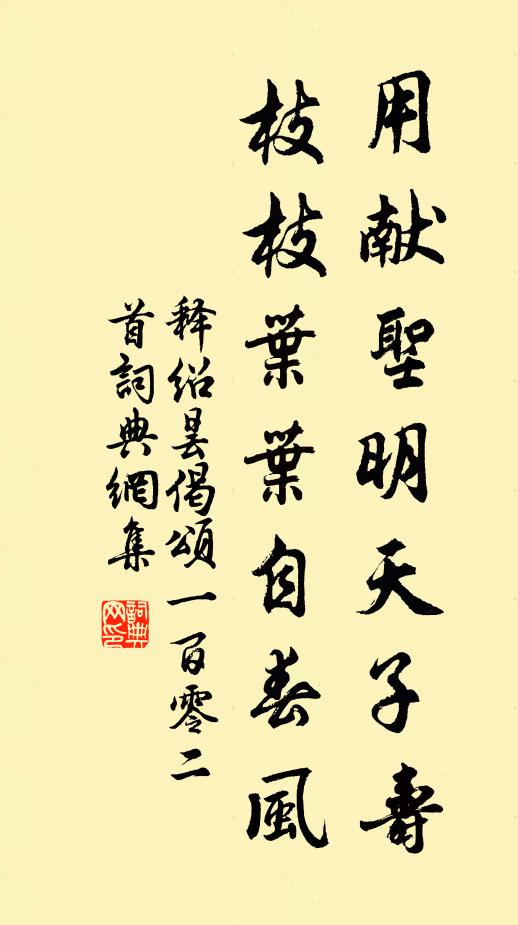 用献聖明天子壽
枝枝葉葉自春風
释绍昙偈頌一百零二
首詞典網集
詞典
网印